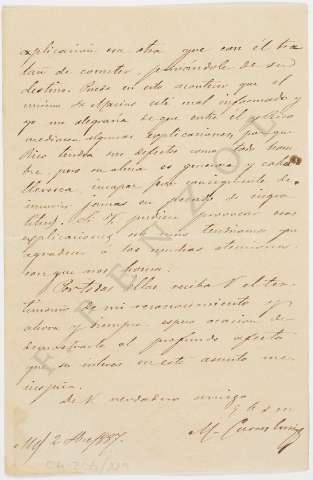 explicación era otra que con él tra
tan de cometer, privándole de su
destino. Puede en esto acontecer que el
mismo esté mal informado y
yo me alegraría de que entre él y Rico
mediasen algunas explicaciones, porque
Rico tendrá sus defectos como todo hom
bre pero su alma es generosa y caba
lleresca, incapaz por consiguiente de
incurrir jamás en pecado de ingra
titud. Si V. pudiera provocar esas
explicaciones más tendríamos que
agradecer a las muchas atenciones
con que nos honra.
Por todas ellas reciba V. el tes
timonio de mi reconocimiento y
ahora y siempre espero ocasión de
demostrarle el profundo afecto
que su interés en este asunto me
inspira.
de V. verdadero amigo
q b s m
M.
2 87.
F. RENZO